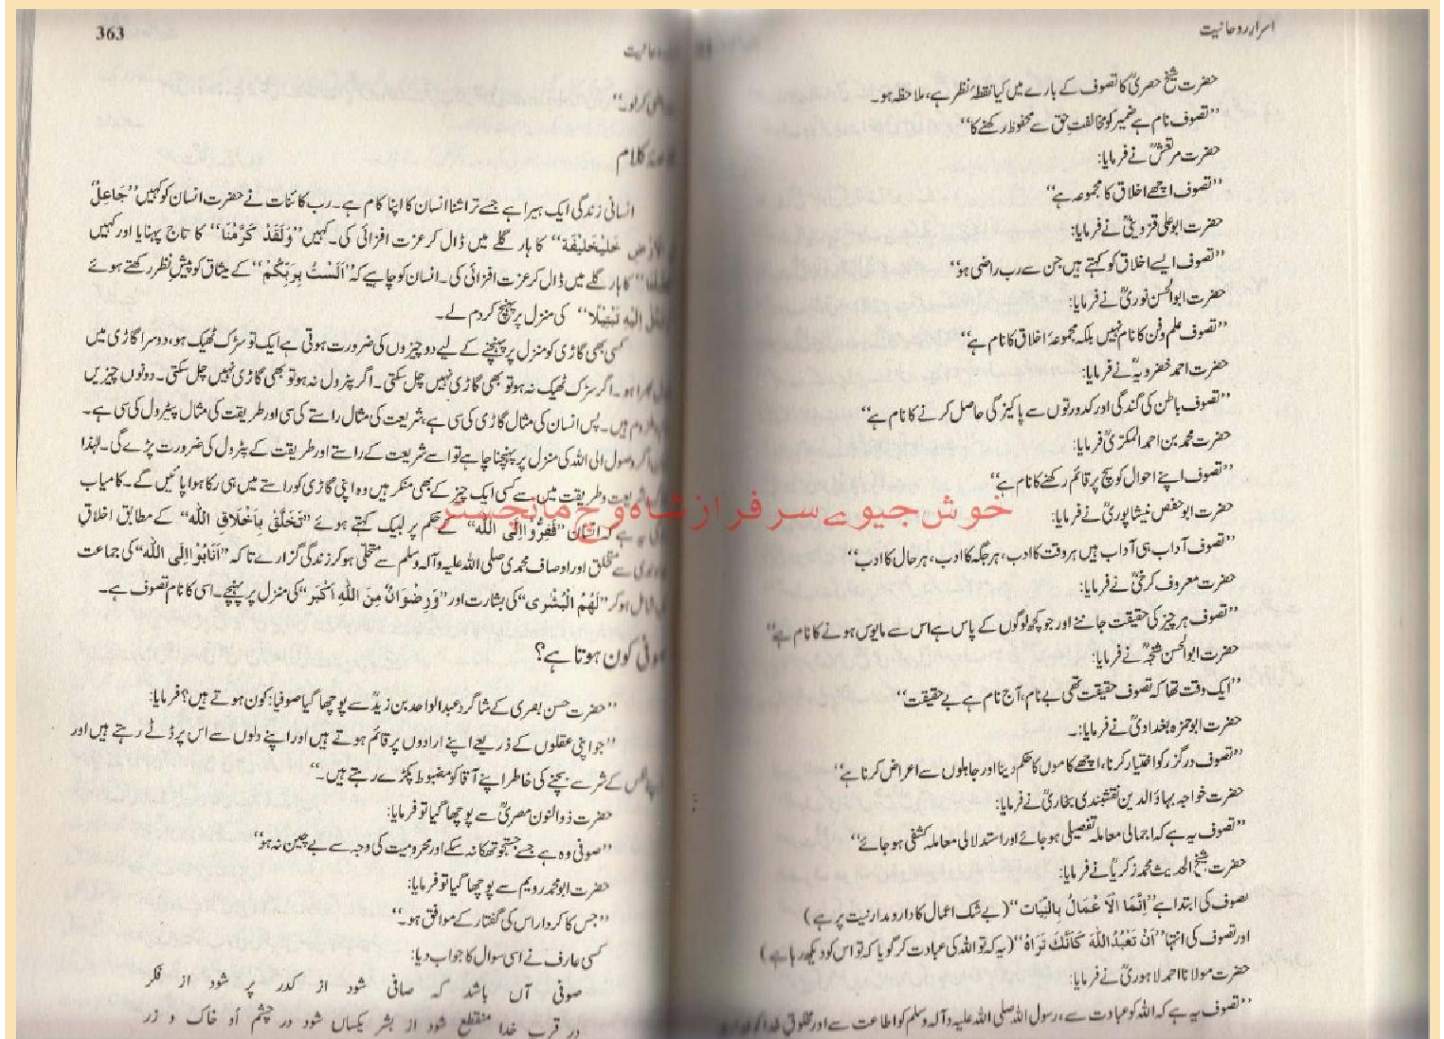 اسرار روحانیت
حضرت شیخ حصریؒ کا تصوف کے بارے میں کیا نقطۂ نظر ہے، ملاحظہ ہو۔
”تصوف نام ہے ضمیر کو مخالفتِ حق سے محفوظ رکھنے کا“
حضرت مرتعشؒ نے فرمایا:
”تصوف اچھے اخلاق کا مجموعہ ہے“
حضرت ابو علی قزوینیؒ نے فرمایا:
”تصوف ایسے اخلاق کو کہتے ہیں جن سے رب راضی ہو“
حضرت ابوالحسن نوریؒ نے فرمایا:
”تصوف علم و فن کا نام نہیں بلکہ مجموعۂ اخلاق کا نام ہے“
حضرت احمد خضرویہؒ نے فرمایا:
”تصوف باطن کی گندگی اور کدورتوں سے پاکیزگی حاصل کرنے کا نام ہے“
حضرت محمد بن احمد المکریؒ فرمایا:
”تصوف اپنے احوال کو سچ پر قائم رکھنے کا نام ہے“
حضرت ابو حفص نیشاپوریؒ نے فرمایا:
”تصوف آداب ہی آداب ہیں ہر وقت کا ادب، ہر جگہ کا ادب، ہر حال کا ادب“
حضرت معروف کرخیؒ نے فرمایا:
”تصوف ہر چیز کی حقیقت جاننے اور جو کچھ لوگوں کے پاس ہے اس سے مایوس ہونے کا نام ہے“
حضرت ابوالحسن نے فرمایا:
”ایک وقت تھا کہ تصوف حقیقت تھی بے نام، آج نام ہے بے حقیقت“
حضرت ابو حمزہ بغدادیؒ نے فرمایا:۔
”تصوف درگزر کو اختیار کرنا، اچھے کاموں کا حکم دینا اور جاہلوں سے اعراض کرنا ہے“
حضرت خواجہ بہاؤالدین نقشبندی بخاریؒ نے فرمایا:
”تصوف یہ ہے کہ اجمالی معاملہ تفصیلی ہو جائے اور استدلالی معاملہ کشفی ہو جائے“
حضرت شیخ الحدیث محمد زکریاؒ نے فرمایا:
تصوف کی ابتدا ہے ”اِنَّمَا الْاَعْمَالُ بِالنِّیَات“ (بے شک اعمال کا دارومدار نیت پر ہے)
اور تصوف کی انتہا ”اَنْ تَعْبُدُ اللّٰہَ کَاَنَّکَ تَرَاہُ“ (یہ کہ تو اللہ کی عبادت کر گویا کہ تو اس کو دیکھ رہا ہے)
حضرت مولانا احمد لاہوریؒ نے فرمایا:
”تصوف یہ ہے کہ اللہ کو عبادت سے، رسول اللہ صلی اللہ علیہ وآلہ وسلم کو اطاعت سے اور مخلوق خدا کو
363
روحانیت
راضی کر لو۔“
کلام
انسانی زندگی ایک ہیرا ہے جسے تراشنا انسان کا اپنا کام ہے۔ رب کائنات نے حضرت انسان کو کہیں ”جَاعِلٌ
الْاَرْضِ خَلِیْفَۃ“ کا ہار گلے میں ڈال کر عزت افزائی کی۔ کہیں ”وَلَقَدْ کَرَّمْنَا“ کا تاج پہنایا اور کہیں
کا ہار گلے میں ڈال کر عزت افزائی کی۔ انسان کو چاہیے کہ ”اَلَسْتُ بِرَبِّکُمْ“ کے میثاق کو پیشِ نظر رکھتے ہوئے
اِلَیْہِ تَبْتِیْلًا“ کی منزل پر پہنچ کر دم لے۔
کسی بھی گاڑی کو منزل پر پہنچنے کے لیے دو چیزوں کی ضرورت ہوتی ہے ایک تو سڑک ٹھیک ہو، دوسرا گاڑی میں
بھرا ہو۔ اگر سڑک ٹھیک نہ ہو تو بھی گاڑی نہیں چل سکتی۔ اگر پٹرول نہ ہو تو بھی گاڑی نہیں چل سکتی۔ دونوں چیزیں
ہیں۔ پس انسان کی مثال گاڑی کی سی ہے، شریعت کی مثال راستے کی سی اور طریقت کی مثال پیٹرول کی سی ہے۔
اگر وصول الی اللہ کی منزل پر پہنچنا چاہے تو اسے شریعت کے راستے اور طریقت کے پٹرول کی ضرورت پڑے گی۔ لہٰذا
شریعت و طریقت میں سے کسی ایک چیز کے بھی منکر ہیں وہ اپنی گاڑی کو راستے میں ہی رکا ہوا پائیں گے۔ کامیاب
خوش جیوے سرفراز شاہ وچ مانچسٹر
یہ ہے کہ انسان ”فَفِرُّوْا اِلَی اللّٰہ“ کے حکم پر لبیک کہتے ہوئے ”تَخَلَّقْ بِاَخْلَاقِ اللّٰہ“ کے مطابق اخلاقِ
سے متخلق اور اوصاف محمدی صلی اللہ علیہ وآلہ وسلم سے متحلی ہو کر زندگی گزارے تاکہ ”اَنَابُوْا اِلَی اللّٰہ“ کی جماعت
شامل ہو کر ”لَھُمُ الْبُشْریٰ“ کی بشارت اور ”وَرِضْوَانٌ مِنَ اللّٰہِ اَکْبَر“ کی منزل پر پہنچے۔ اسی کا نام تصوف ہے۔
صوفی کون ہوتا ہے؟
”حضرت حسن بصری کے شاگرد عبدالواحد بن زیدؒ سے پوچھا گیا صوفیا: کون ہوتے ہیں؟ فرمایا:
”جو اپنی عقلوں کے ذریعے اپنے ارادوں پر قائم ہوتے ہیں اور اپنے دلوں سے اس پر ڈٹے رہتے ہیں اور
نفس کے شر سے بچنے کی خاطر اپنے آقا کو مضبوط پکڑے رہتے ہیں۔“
حضرت ذوالنون مصریؒ سے پوچھا گیا تو فرمایا:
”صوفی وہ ہے جسے جستجو تھکا نہ سکے اور محرومیت کی وجہ سے بے چین نہ ہو“
حضرت ابو محمد رویم سے پوچھا گیا تو فرمایا:
”جس کا کردار اس کی گفتار کے موافق ہو۔“
کسی عارف نے اسی سوال کا جواب دیا:
صوفی آں باشد کہ صافی شود از کدر پر شود از فکر
در قرب خدا منقطع شود از بشر یکساں شود در چشم اُو خاک و زر